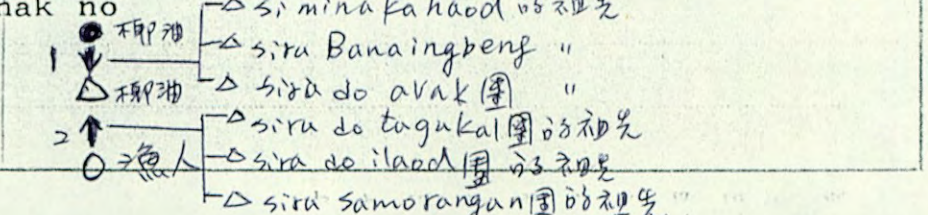 nak no
si minakahaod 的祖先
椰油
sira Banaingbeng "
1
椰油 sira do avak 團 "
sira do tagukal 團的祖先
2
漁人 sira do ilaod 團的祖先
sira samorangan 團的祖先